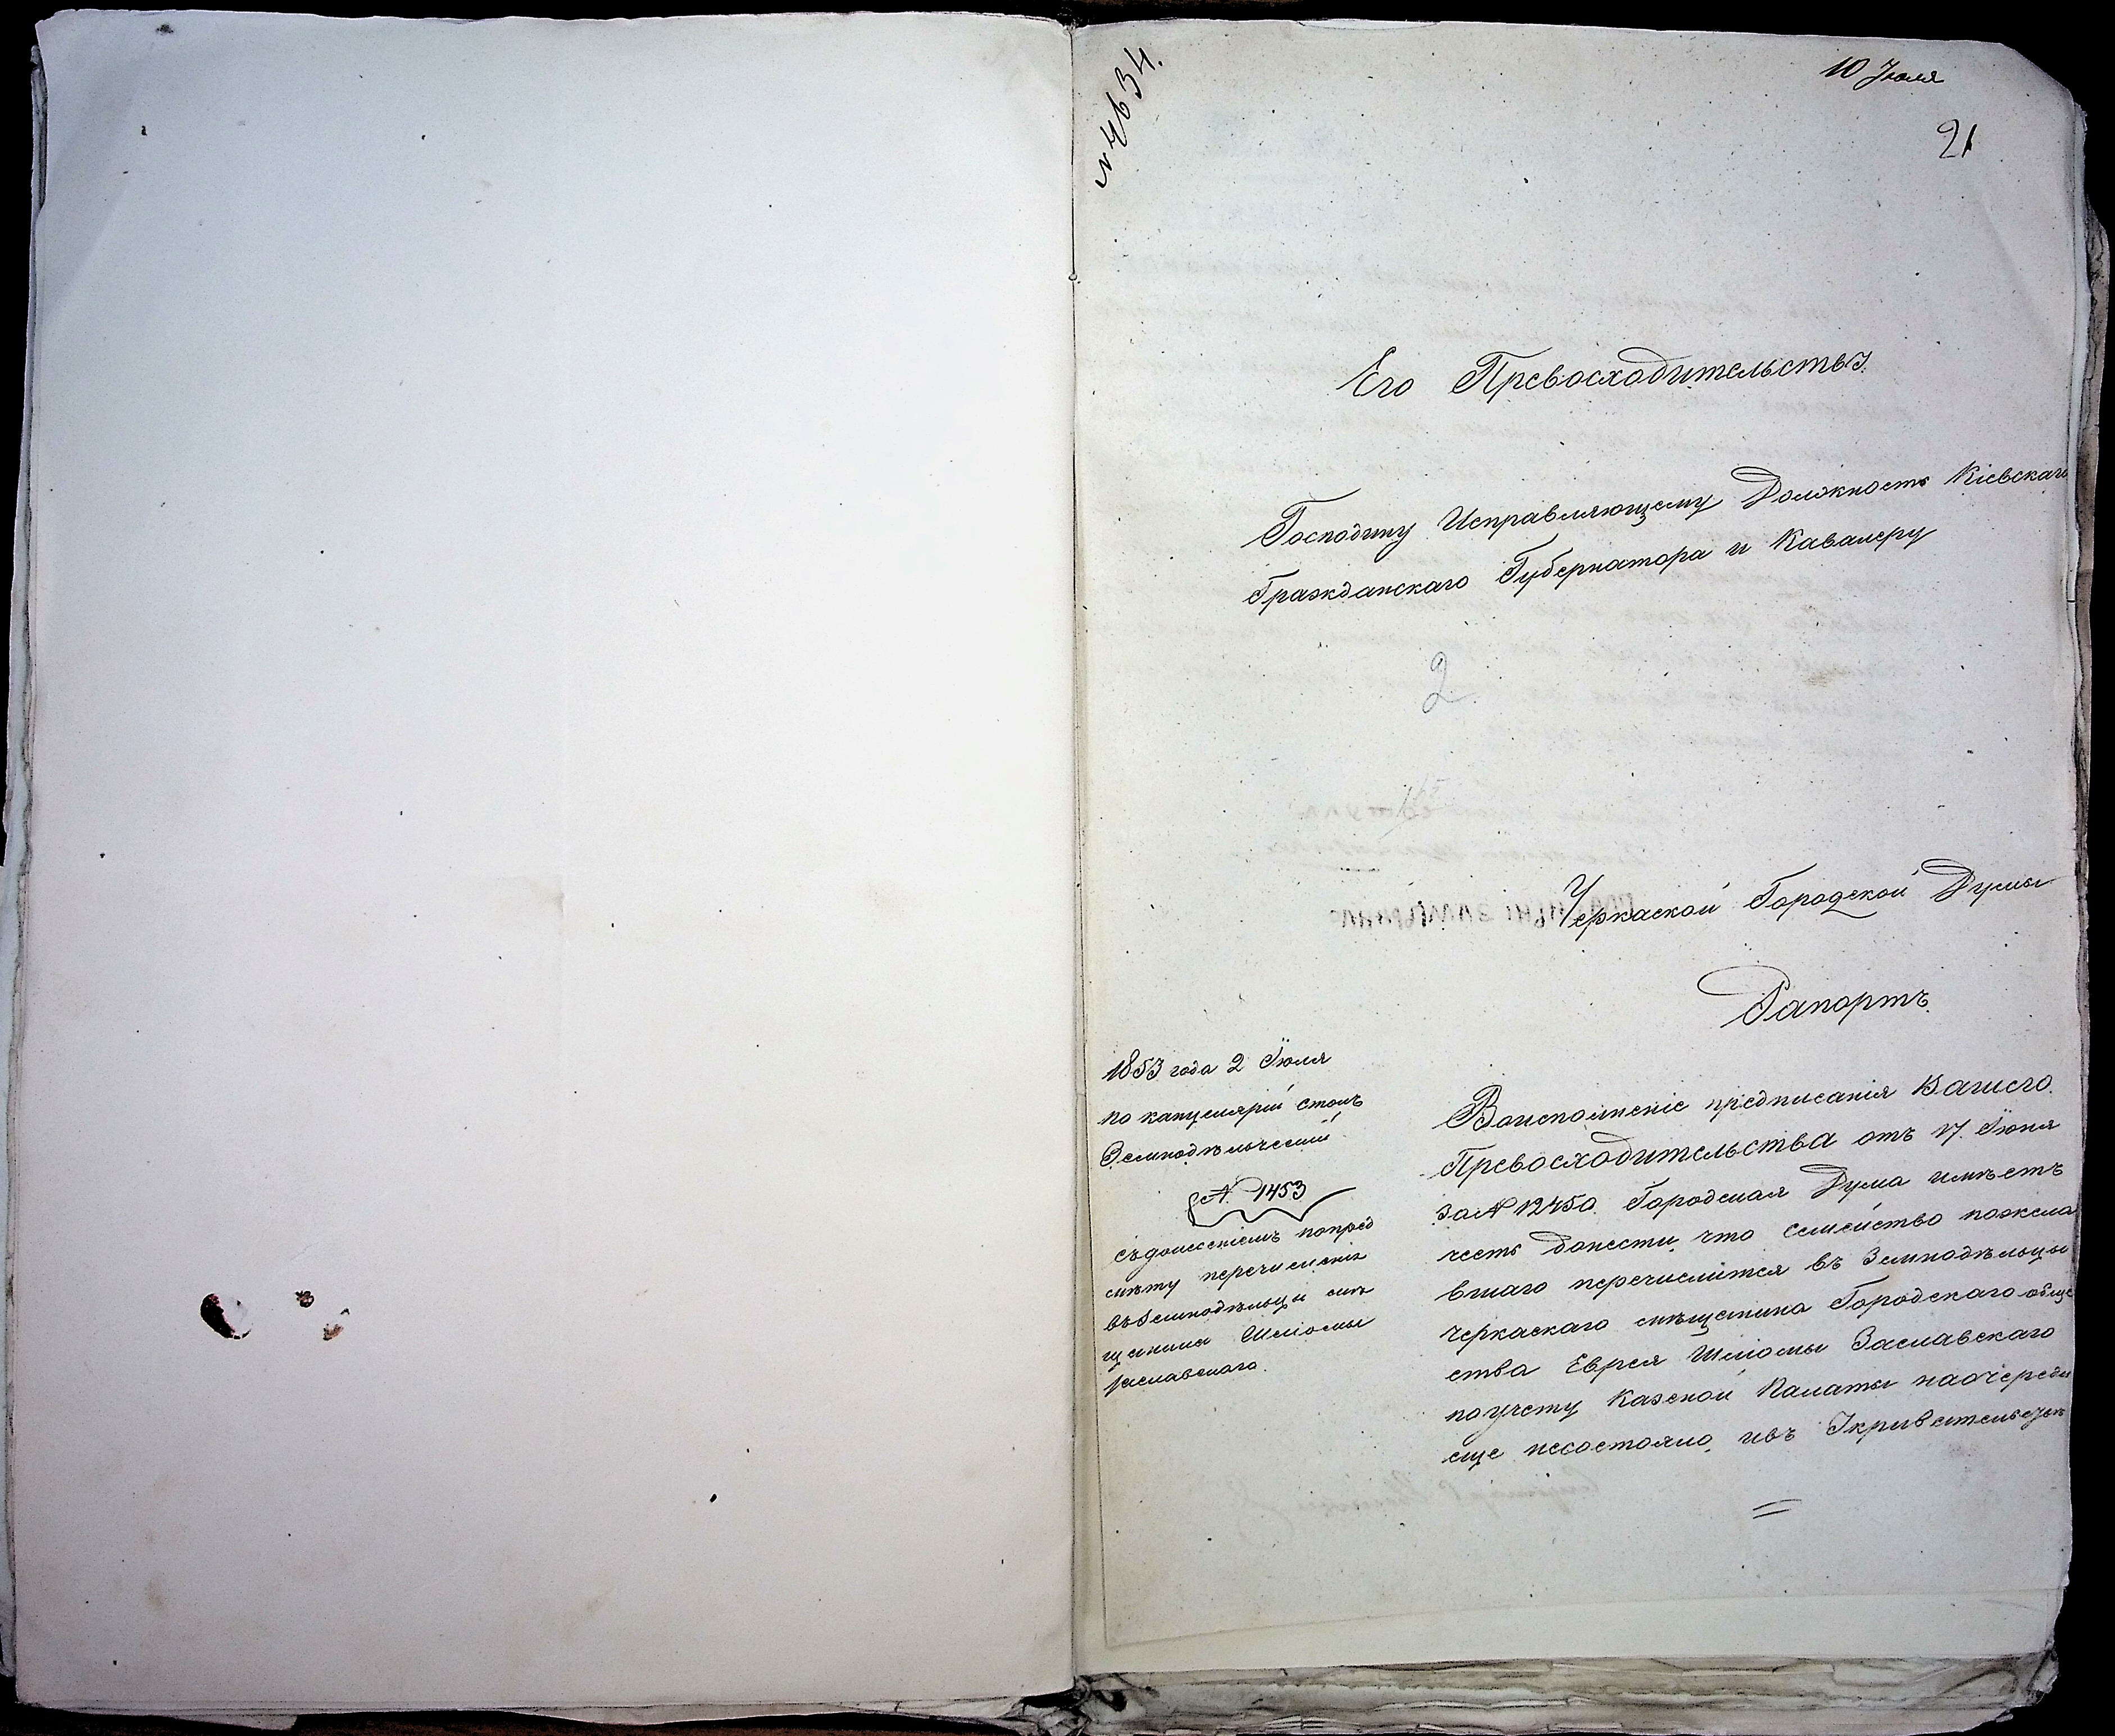 № 4634.
10 Іюля
21
Его Превосходительству
Господину Исправляющему Должность Кіевскаго
Гражданскаго Губернатора и Кавалеру
2
Черкаской Городской Думы
Рапортъ.
1853 года 2 Іюля
по канцеляріи столъ
Земледѣльческій
№ 1453
съ донесеніемъ по пред
мѣту перечисленія
въ Земледѣльцы мѣ
щанина Шліомы
Заславскаго.
Воисполненіе предписанія Вашего
Превосходительства отъ 17 Іюня
за № 12450 Городская Дума имѣетъ
честь донести, что Семейство пожела
вшаго перечислится въ Земледѣльцы
Черкаскаго мѣщанина Городскаго обще
ства Еврея Шліомы Заславскаго
по учету Казеной Палаты на очереди
еще несостояло, ивъ